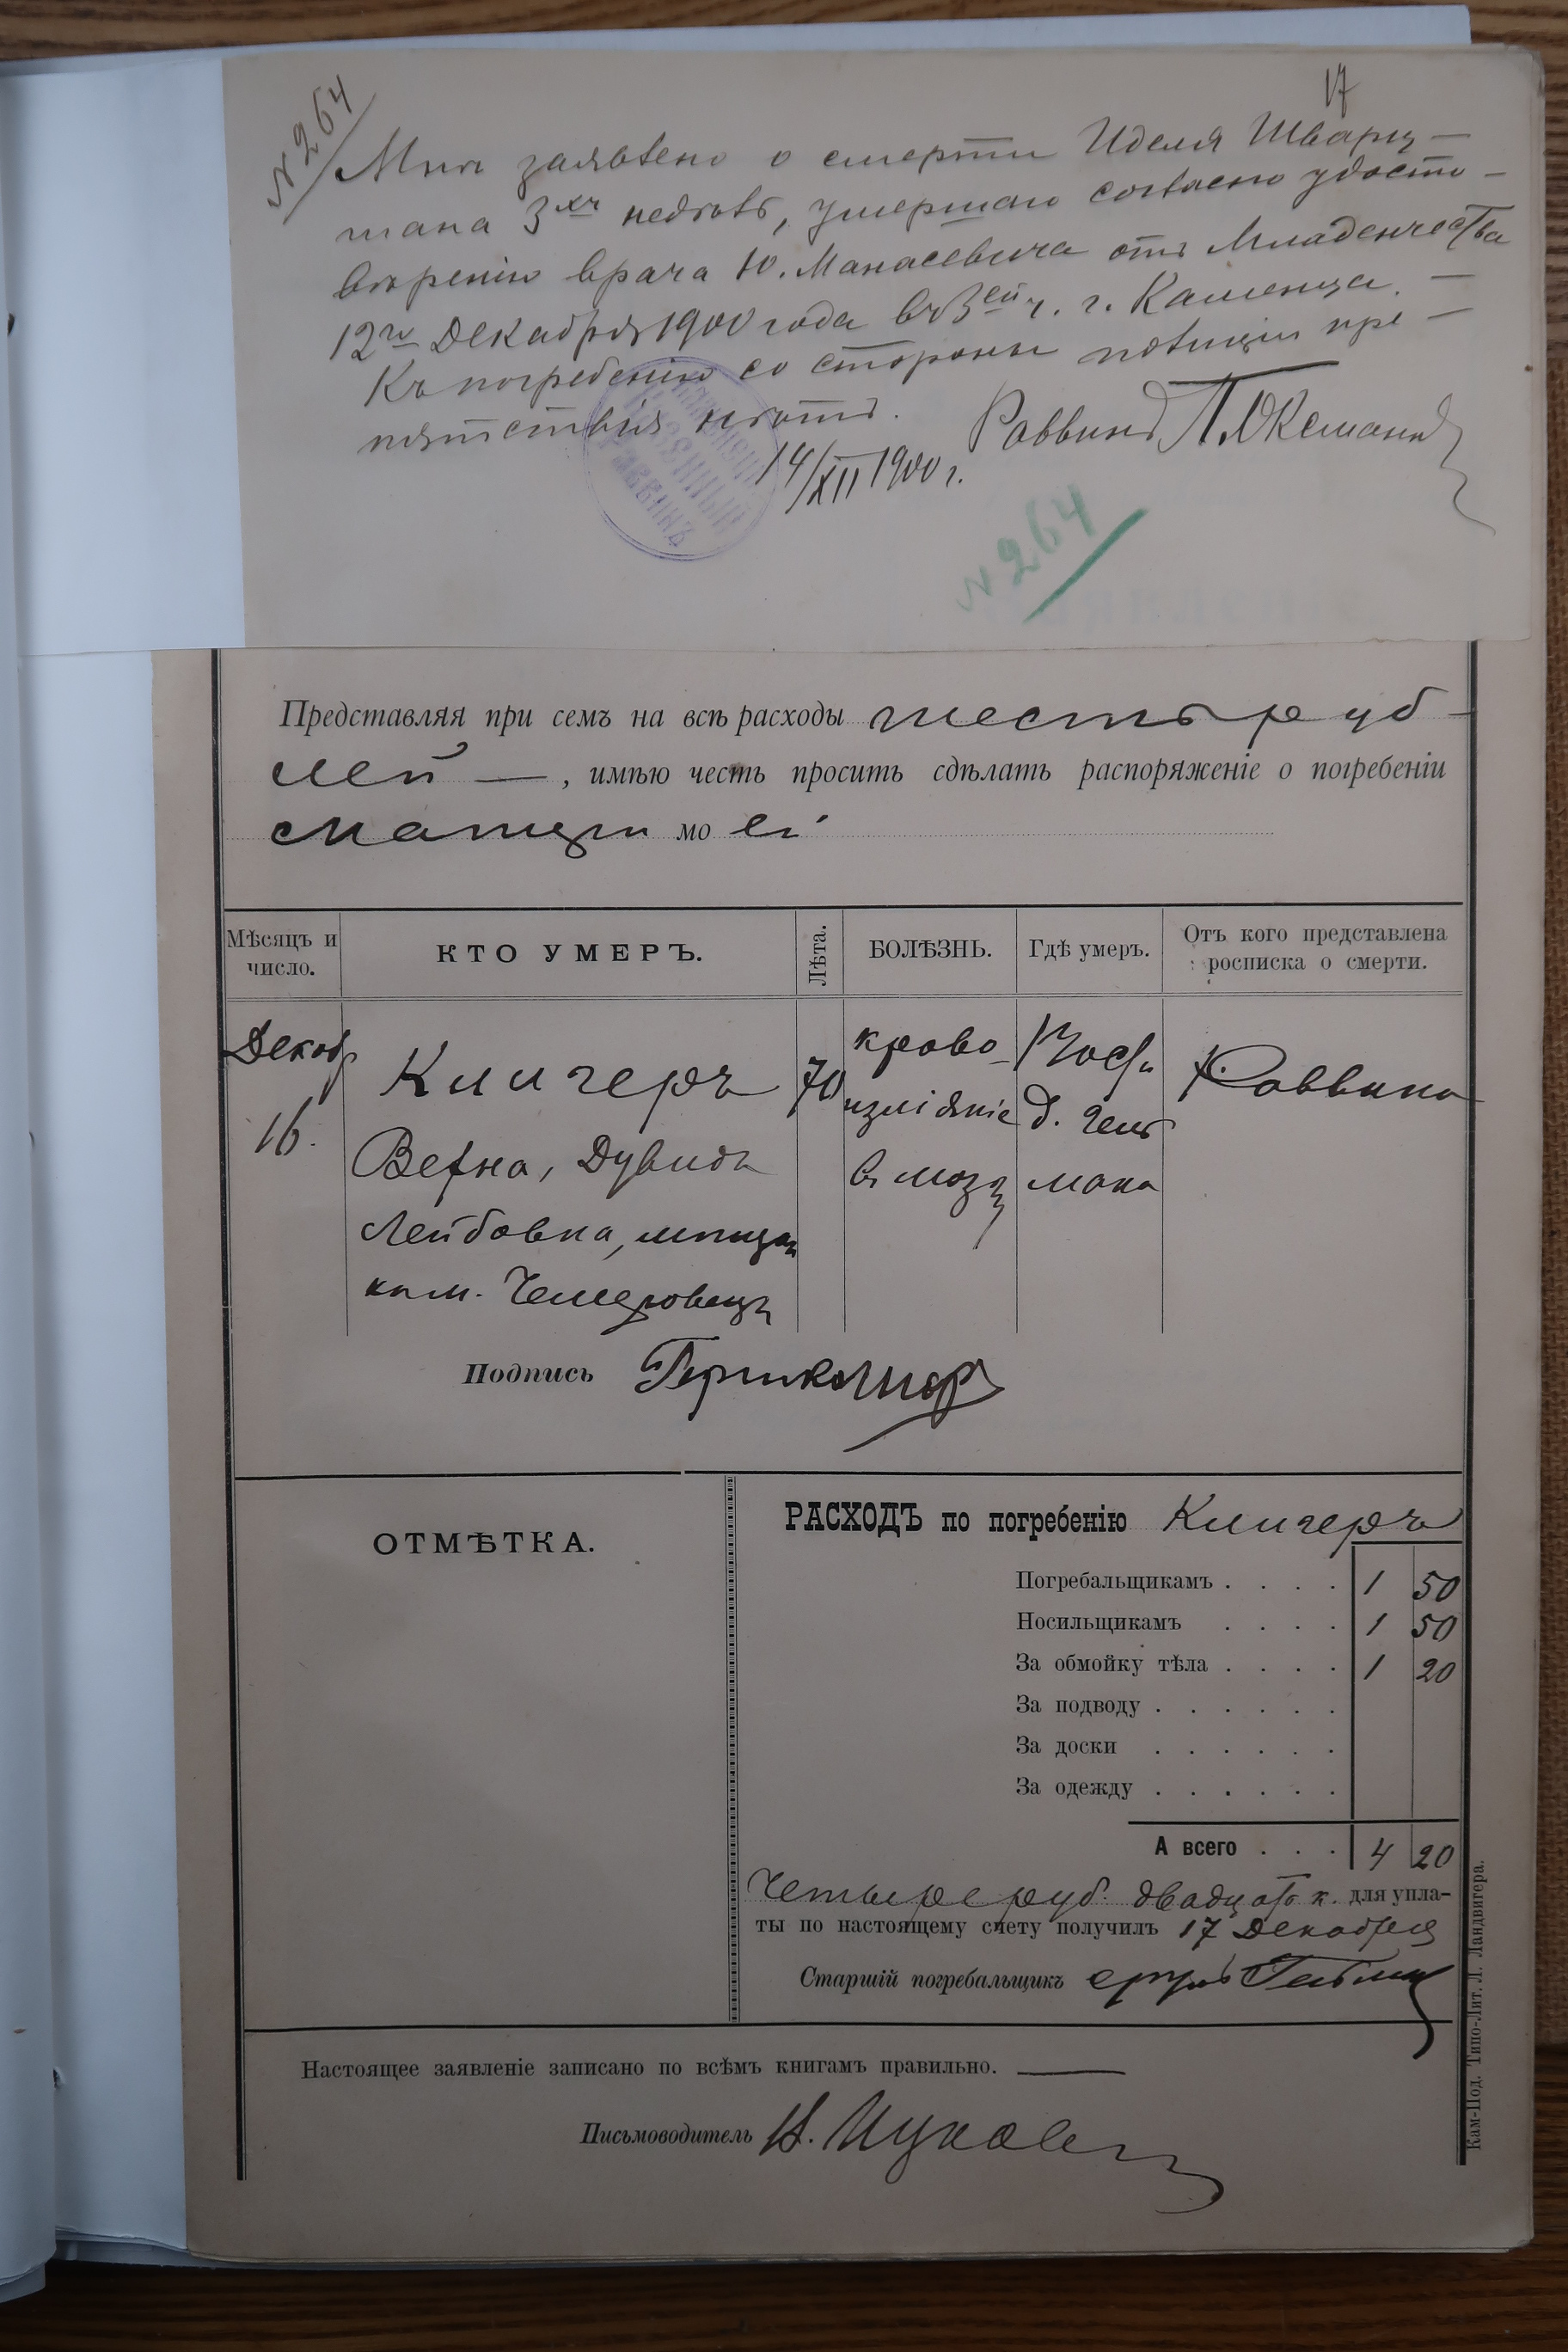 17
№ 264
Мнѣ заявлено о смерти Иделя Шварц-
мана 3хъ недѣль, умершаго согласно удосто-
вѣренію врача Ю. Манасевича отъ Младенчества
12го Декабря 1900 года въ 3ей ч. г. Каменца. —
Къ погребенію со стороны полиціи пре-
пятствія нѣтъ.
Раввинъ
14/XII 1900 г.
КАЗЕННЫЙ
РАВВИНЪ
№ 264
Представляя при семъ на всѣ расходы шесть руб-
лей —, имѣю честь просить сдѣлать распоряженіе о погребеніи
матери моей
Мѣсяцъ и число.
КТО УМЕРЪ.
Лѣта.
БОЛѢЗНЬ.
Гдѣ умеръ.
Отъ кого представлена росписка о смерти.
Декабр
16.
Клигеръ
Дувидъ
Лейбовна, мѣщан
м. Чемеровецъ
70
крово-
изліяніе
въ мозгъ
д. Гель
мана
Раввина
Подпись
ОТМѢТКА.
РАСХОДЪ по погребенію Клигеръ
Погребальщикамъ . . . . 1 50
Носильщикамъ . . . . 1 50
За обмойку тѣла . . . . 1 20
За подводу . . . . .
За доски . . . . .
За одежду . . . . .
А всего . . . 4 20
Четыре руб. двадцать к. для упла-
ты по настоящему счету получилъ 17 Декабря
Старшій погребальщикъ
Настоящее заявленіе записано по всѣмъ книгамъ правильно. —
Письмоводитель
Кам-Под. Типо-Лит. Л. Ландвигера.